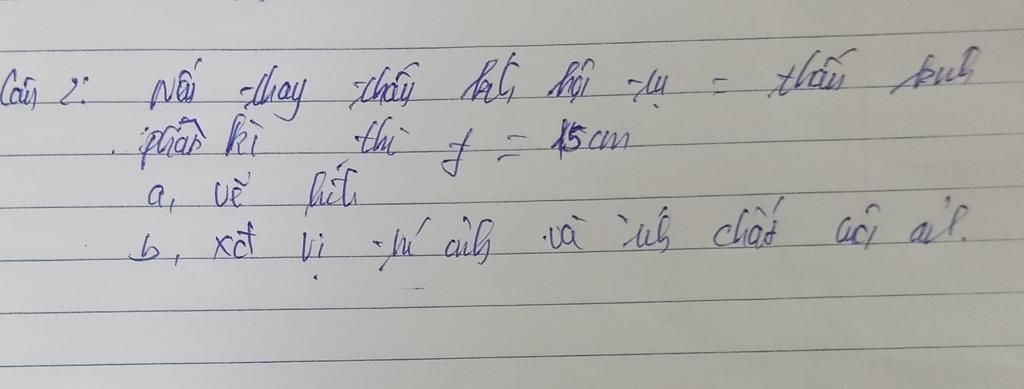 Câu 2: Nếu thay thấu kính hội tụ = thấu kính
phân kì thì f = 15cm
a, vẽ hình
b, xđ vị trí ảnh và tính chất của ảnh.